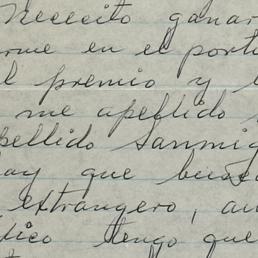 Necesito ganar
me en el port
l premio y
me apellido
pellido Sanmig
ay que busca
extrangero, au
tico tengo que